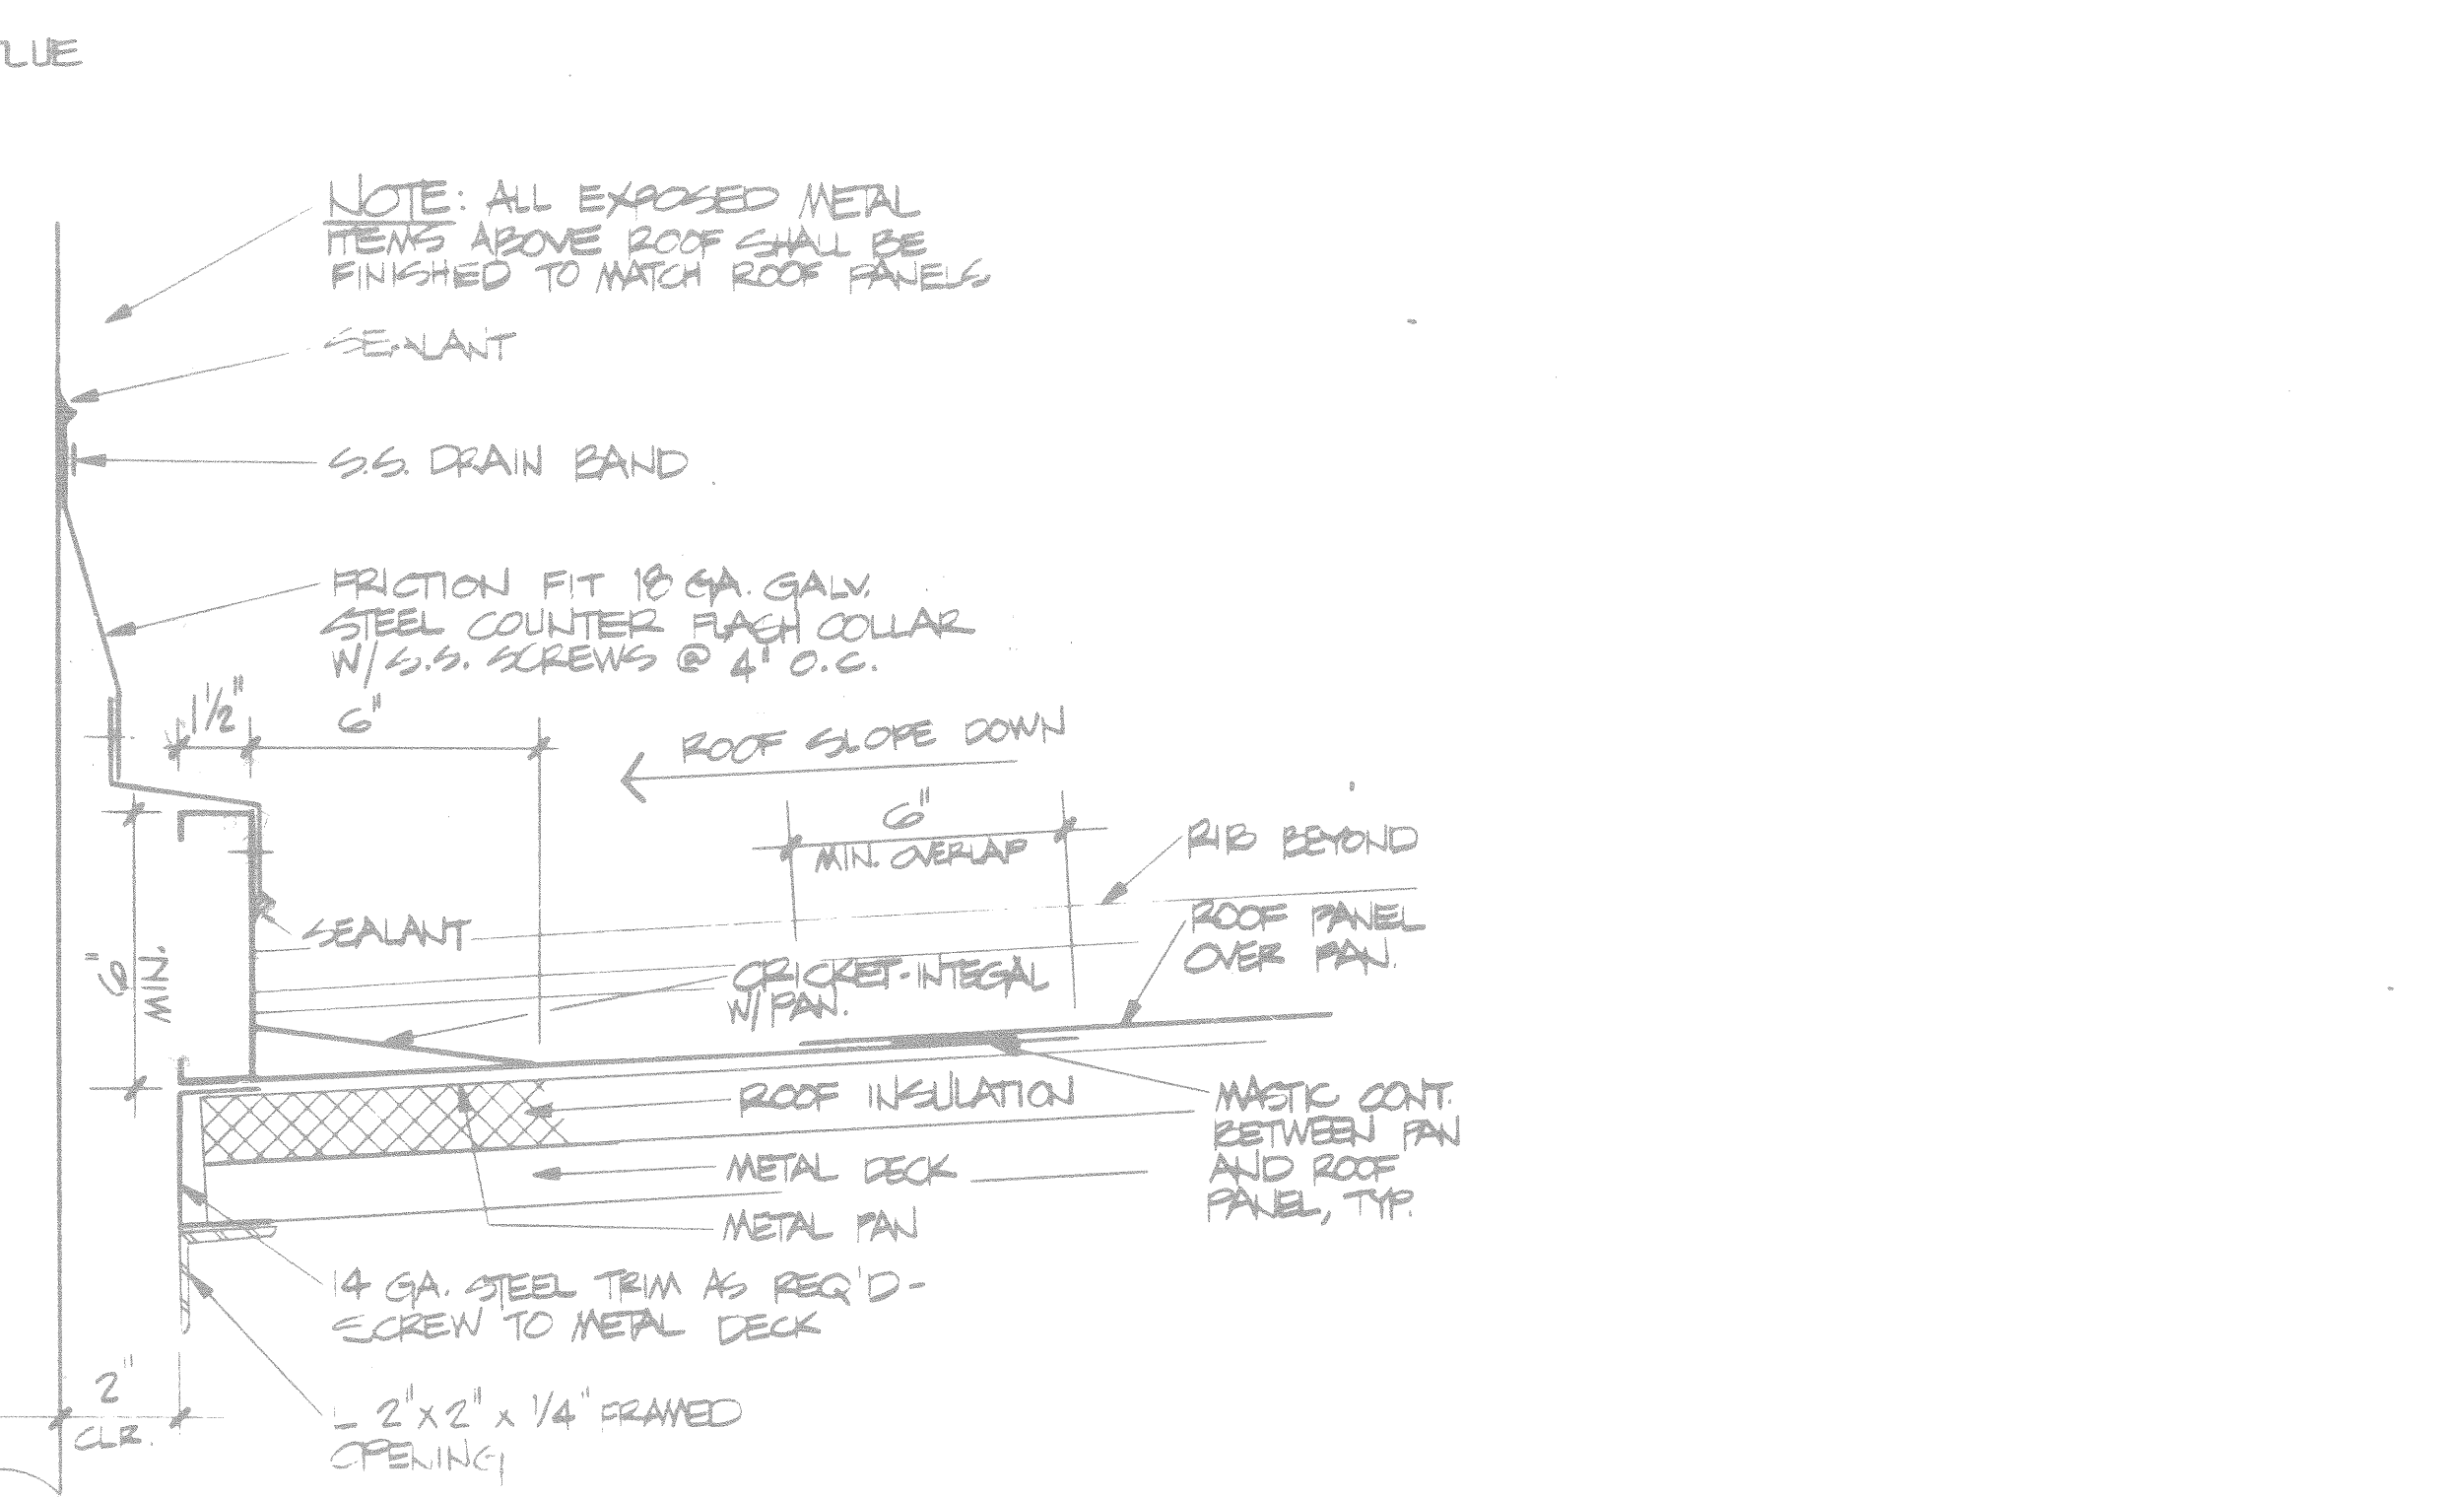 LUE
NOTE: ALL EXPOSED METAL
ITEMS ABOVE ROOF SHALL BE
FINISHED TO MATCH ROOF PANELS
SEALANT
S.S. DRAIN BAND
FRICTION FIT 18 GA. GALV.
STEEL COUNTER FLASH COLLAR
W/ S.S. SCREWS @ 4" O.C.
1 1/2"
6"
ROOF SLOPE DOWN
6"
MIN. OVERLAP
RIB BEYOND
ROOF PANEL
OVER PAN.
SEALANT
6"
MIN.
CRICKET-INTEGAL
W/ PAN.
ROOF INSULATION
MASTIC CONT.
BETWEEN PAN
AND ROOF
PANEL, TYP.
METAL DECK
METAL PAN
14 GA. STEEL TRIM AS REQ'D-
SCREW TO METAL DECK
2"
CLR.
L 2" x 2" x 1/4" FRAMED
OPENING